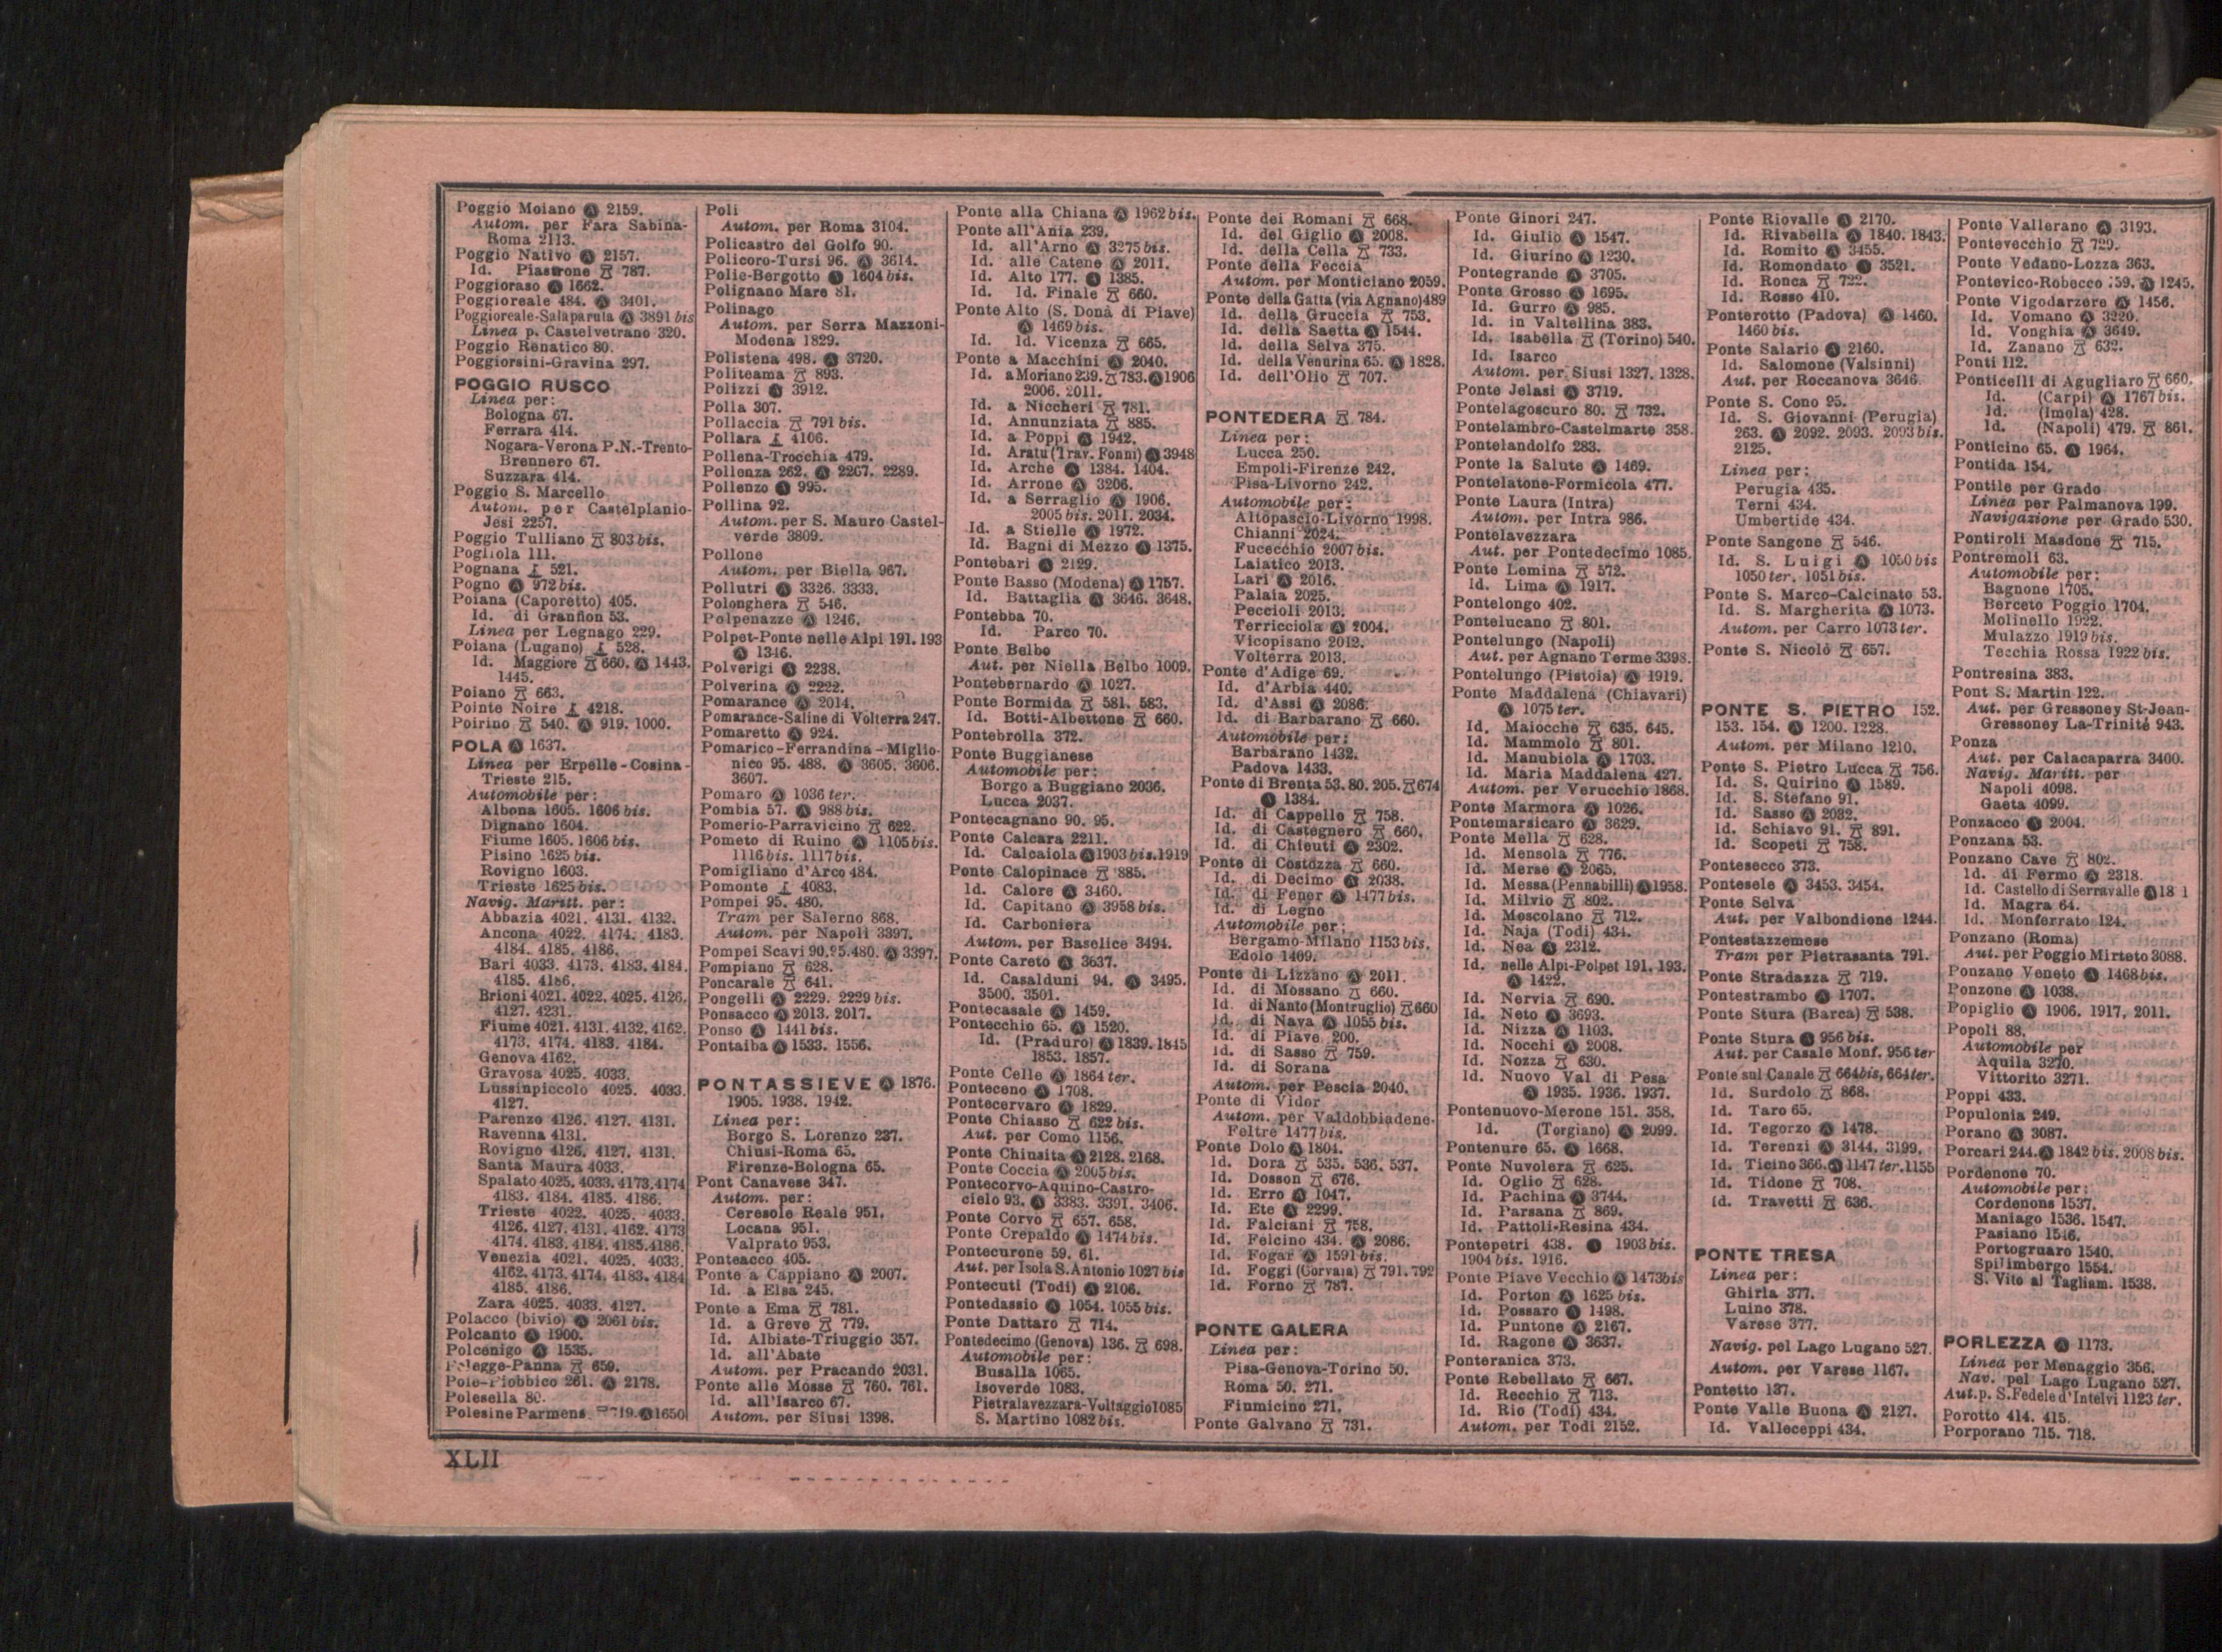 Poggio Moiano Ⓐ 2159.
Autom. per Fara Sabina-
Roma 2113.
Poggio Nativo Ⓐ 2157.
Id. Piastrone 787.
Poggioraso Ⓐ 1662.
Poggioreale 484. Ⓐ 3401.
Poggioreale-Salaparuta Ⓐ 3891 bis
Linea p. Castelvetrano 320.
Poggio Renatico 80.
Poggiorsini-Gravina 297.
POGGIO RUSCO
Linea per:
Bologna 67.
Ferrara 414.
Nogara-Verona P.N.-Trento-
Brennero 67.
Suzzara 414.
Poggio S. Marcello
Autom. per Castelplanio-
Jesi 2257.
Poggio Tulliano 803 bis.
Pogliola 111.
Pognana 521.
Pogno Ⓐ 972 bis.
Poiana (Caporetto) 405.
Id. di Granfion 53.
Linea per Legnago 229.
Poiana (Lugano) 528.
Id. Maggiore 660. Ⓐ 1443.
1445.
Poiano 663.
Pointe Noire 4218.
Poirino 540. Ⓐ 919. 1000.
POLA Ⓐ 1637.
Linea per Erpelle-Cosina-
Trieste 215.
Automobile per:
Albona 1605. 1606 bis.
Dignano 1604.
Fiume 1605. 1606 bis.
Pisino 1625 bis.
Rovigno 1603.
Trieste 1625 bis.
Navig. Maritt. per:
Abbazia 4021. 4131. 4132.
Ancona 4022. 4174. 4183.
4184. 4185. 4186.
Bari 4033. 4173. 4183. 4184.
4185. 4186.
Brioni 4021. 4022. 4025. 4126.
4127. 4231.
Fiume 4021. 4131. 4132. 4162.
4173. 4174. 4183. 4184.
Genova 4162.
Gravosa 4025. 4033.
Lussinpiccolo 4025. 4033.
4127.
Parenzo 4126. 4127. 4131.
Ravenna 4131.
Rovigno 4126. 4127. 4131.
Santa Maura 4033.
Spalato 4025. 4033. 4173. 4174
4183. 4184. 4185. 4186.
Trieste 4022. 4025. 4033.
4126. 4127. 4131. 4162. 4173
4174. 4183. 4184. 4185. 4186.
Venezia 4021. 4025. 4033.
4162. 4173. 4174. 4183. 4184
4185. 4186.
Zara 4025. 4033. 4127.
Polacco (bivio) Ⓐ 2061 bis.
Polcanto Ⓐ 1900.
Polcenigo Ⓐ 1535.
Polegge-Panna 659.
Pole-Piobbico 261. Ⓐ 2178.
Polesella 80.
Polesine Parmens. 719. Ⓐ 1650
Poli
Autom. per Roma 3104.
Policastro del Golfo 90.
Policoro-Tursi 96. Ⓐ 3614.
Polie-Bergotto Ⓐ 1604 bis.
Polignano Mare 81.
Polinago
Autom. per Serra Mazzoni-
Modena 1829.
Polistena 498. Ⓐ 3720.
Politeama 893.
Polizzi Ⓐ 3912.
Polla 307.
Pollaccia 791 bis.
Pollara 4106.
Pollena-Trocchia 479.
Pollenza 262. Ⓐ 2267. 2289.
Pollenzo Ⓐ 995.
Pollina 92.
Autom. per S. Mauro Castel-
verde 3809.
Pollone
Autom. per Biella 967.
Pollutri Ⓐ 3326. 3333.
Polonghera 546.
Polpenazze Ⓐ 1246.
Polpet-Ponte nelle Alpi 191. 193
Ⓐ 1346.
Polverigi Ⓐ 2238.
Polverina Ⓐ 2222.
Pomarance Ⓐ 2014.
Pomarance-Saline di Volterra 247.
Pomaretto Ⓐ 924.
Pomarico-Ferrandina-Miglio-
nico 95. 488. Ⓐ 3605. 3606.
3607.
Pomaro Ⓐ 1036 ter.
Pombia 57. Ⓐ 988 bis.
Pomerio-Parravicino 622.
Pometo di Ruino Ⓐ 1105 bis.
1116 bis. 1117 bis.
Pomigliano d'Arco 484.
Pomonte 4083.
Pompei 95. 480.
Tram per Salerno 868.
Autom. per Napoli 3397.
Pompei Scavi 90. 95. 480. Ⓐ 3397.
Pompiano 628.
Poncarale 641.
Pongelli Ⓐ 2229. 2229 bis.
Ponsacco Ⓐ 2013. 2017.
Ponso Ⓐ 1441 bis.
Pontaiba Ⓐ 1533. 1556.
PONTASSIEVE Ⓐ 1876.
1905. 1938. 1942.
Linea per:
Borgo S. Lorenzo 237.
Chiusi-Roma 65.
Firenze-Bologna 65.
Pont Canavese 347.
Autom. per:
Ceresole Reale 951.
Locana 951.
Valprato 953.
Ponteacco 405.
Ponte a Cappiano Ⓐ 2007.
Id. a Elsa 245.
Ponte a Ema 781.
Id. a Greve 779.
Id. Albiate-Triuggio 357.
Id. all'Abate
Autom. per Pracando 2031.
Ponte alle Mosse 760. 761.
Id. all'Isarco 67.
Autom. per Siusi 1398.
Ponte alla Chiana Ⓐ 1962 bis.
Ponte all'Ania 239.
Id. all'Arno Ⓐ 3275 bis.
Id. alle Catene Ⓐ 2011.
Id. Alto 177. Ⓐ 1385.
Id. Id. Finale 660.
Ponte Alto (S. Donà di Piave)
Ⓐ 1469 bis.
Id. Id. Vicenza 665.
Ponte a Macchini Ⓐ 2040.
Id. a Moriano 239. 783. Ⓐ 1906
2006. 2011.
Id. a Niccheri 781.
Id. Annunziata 885.
Id. a Poppi Ⓐ 1942.
Id. Aratu (Trav. Fonni) Ⓐ 3948
Id. Arche Ⓐ 1384. 1404.
Id. Arrone Ⓐ 3206.
Id. a Serraglio Ⓐ 1906.
2005 bis. 2011. 2034.
Id. a Stielle Ⓐ 1972.
Id. Bagni di Mezzo Ⓐ 1375.
Pontebari Ⓐ 2129.
Ponte Basso (Modena) Ⓐ 1757.
Id. Battaglia Ⓐ 3646. 3648.
Pontebba 70.
Id. Parco 70.
Ponte Belbo
Aut. per Niella Belbo 1009.
Pontebernardo Ⓐ 1027.
Ponte Bormida 581. 583.
Id. Botti-Albettone 660.
Pontebrolla 372.
Ponte Buggianese
Automobile per:
Borgo a Buggiano 2036.
Lucca 2037.
Pontecagnano 90. 95.
Ponte Calcara 2211.
Id. Calcaiola Ⓐ 1903 bis. 1919
Ponte Calopinace 885.
Id. Calore Ⓐ 3460.
Id. Capitano Ⓐ 3958 bis.
Id. Carboniera
Autom. per Baselice 3494.
Ponte Careto Ⓐ 3637.
Id. Casalduni 94. Ⓐ 3495.
3500. 3501.
Pontecasale Ⓐ 1459.
Pontecchio 65. Ⓐ 1520.
Id. (Praduro) Ⓐ 1839. 1845
1853. 1857.
Ponte Celle Ⓐ 1864 ter.
Ponteceno Ⓐ 1708.
Pontecervaro Ⓐ 1829.
Ponte Chiasso 622 bis.
Aut. per Como 1156.
Ponte Chiusita Ⓐ 2128. 2168.
Ponte Coccia Ⓐ 2005 bis.
Pontecorvo-Aquino-Castro-
cielo 93. Ⓐ 3383. 3391. 3406.
Ponte Corvo 657. 658.
Ponte Crepaldo Ⓐ 1474 bis.
Pontecurone 59. 61.
Aut. per Isola S. Antonio 1027 bis
Pontecuti (Todi) Ⓐ 2106.
Pontedassio Ⓐ 1054. 1055 bis.
Ponte Dattaro 714.
Pontedecimo (Genova) 136. 698.
Automobile per:
Busalla 1065.
Isoverde 1083.
Pietralavezzara-Voltaggio 1085
S. Martino 1082 bis.
Ponte dei Romani 668.
Id. del Giglio Ⓐ 2008.
Id. della Cella 733.
Ponte della Feccia
Autom. per Monticiano 2059.
Ponte della Gatta (via Agnano) 489
Id. della Gruccia 753.
Id. della Saetta Ⓐ 1544.
Id. della Selva 375.
Id. della Venurina 65. Ⓐ 1828.
Id. dell'Olio 707.
PONTEDERA 784.
Linea per:
Lucca 250.
Empoli-Firenze 242.
Pisa-Livorno 242.
Automobile per:
Altopascio-Livorno 1998.
Chianni 2024.
Fucecchio 2007 bis.
Laiatico 2013.
Lari Ⓐ 2016.
Palaia 2025.
Peccioli 2013.
Terricciola Ⓐ 2004.
Vicopisano 2012.
Volterra 2013.
Ponte d'Adige 69.
Id. d'Arbia 440.
Id. d'Assi Ⓐ 2086.
Id. di Barbarano 660.
Automobile per:
Barbarano 1432.
Padova 1433.
Ponte di Brenta 53. 80. 205. 674
Ⓐ 1384.
Id. di Cappello 758.
Id. di Castegnero 660.
Id. di Chieuti Ⓐ 2302.
Ponte di Costozza 660.
Id. di Decimo Ⓐ 2038.
Id. di Fener Ⓐ 1477 bis.
Id. di Legno
Automobile per:
Bergamo-Milano 1153 bis.
Edolo 1409.
Ponte di Lizzano Ⓐ 2011.
Id. di Mossano 660.
Id. di Nanto (Montruglio) 660
Id. di Nava Ⓐ 1055 bis.
Id. di Piave 200.
Id. di Sasso 759.
Id. di Sorana
Autom. per Pescia 2040.
Ponte di Vidor
Autom. per Valdobbiadene-
Feltre 1477 bis.
Ponte Dolo Ⓐ 1804.
Id. Dora 535. 536. 537.
Id. Dosson 676.
Id. Erro Ⓐ 1047.
Id. Ete Ⓐ 2299.
Id. Falciani 758.
Id. Felcino 434. Ⓐ 2086.
Id. Fogar Ⓐ 1591 bis.
Id. Foggi (Corvaia) 791. 792
Id. Forno 787.
PONTE GALERA
Linea per:
Pisa-Genova-Torino 50.
Roma 50. 271.
Fiumicino 271.
Ponte Galvano 731.
Ponte Ginori 247.
Id. Giulio Ⓐ 1547.
Id. Giurino Ⓐ 1230.
Pontegrande Ⓐ 3705.
Ponte Grosso Ⓐ 1695.
Id. Gurro Ⓐ 985.
Id. in Valtellina 383.
Id. Isabella (Torino) 540.
Id. Isarco
Autom. per Siusi 1327. 1328.
Ponte Jelasi Ⓐ 3719.
Pontelagoscuro 80. 732.
Pontelambro-Castelmarte 358.
Pontelandolfo 283.
Ponte la Salute Ⓐ 1469.
Pontelatone-Formicola 477.
Ponte Laura (Intra)
Autom. per Intra 986.
Pontelavezzara
Aut. per Pontedecimo 1085.
Ponte Lemina 572.
Id. Lima Ⓐ 1917.
Pontelongo 402.
Pontelucano 801.
Pontelungo (Napoli)
Aut. per Agnano Terme 3398.
Pontelungo (Pistoia) Ⓐ 1919.
Ponte Maddalena (Chiavari)
Ⓐ 1075 ter.
Id. Maiocche 635. 645.
Id. Mammolo 801.
Id. Manubiola Ⓐ 1703.
Id. Maria Maddalena 427.
Autom. per Verucchio 1868.
Ponte Marmora Ⓐ 1026.
Pontemarsicaro Ⓐ 3629.
Ponte Mella 628.
Id. Mensola 776.
Id. Merse Ⓐ 2065.
Id. Messa (Pennabilli) Ⓐ 1958.
Id. Milvio 802.
Id. Moscolano 712.
Id. Naja (Todi) 434.
Id. Nea Ⓐ 2312.
Id. nelle Alpi-Polpet 191. 193.
Ⓐ 1422.
Id. Nervia 690.
Id. Neto Ⓐ 3693.
Id. Nizza Ⓐ 1103.
Id. Nocchi Ⓐ 2008.
Id. Nozza 630.
Id. Nuovo Val di Pesa
Ⓐ 1935. 1936. 1937.
Pontenuovo-Merone 151. 358.
Id. (Torgiano) Ⓐ 2099.
Pontenure 65. Ⓐ 1668.
Ponte Nuvolera 625.
Id. Oglio 628.
Id. Pachina Ⓐ 3744.
Id. Parsana 869.
Id. Pattoli-Resina 434.
Pontepetri 438. Ⓐ 1903 bis.
1904 bis. 1916.
Ponte Piave Vecchio Ⓐ 1473 bis
Id. Porton Ⓐ 1625 bis.
Id. Possaro Ⓐ 1498.
Id. Puntone Ⓐ 2167.
Id. Ragone Ⓐ 3637.
Ponteranica 373.
Ponte Rebellato 667.
Id. Recchio 713.
Id. Rio (Todi) 434.
Autom. per Todi 2152.
Ponte Riovalle Ⓐ 2170.
Id. Rivabella Ⓐ 1840. 1843.
Id. Romito Ⓐ 3455.
Id. Romondato Ⓐ 3521.
Id. Ronca 722.
Id. Rosso 410.
Ponterotto (Padova) Ⓐ 1460.
1460 bis.
Ponte Salario Ⓐ 2160.
Id. Salomone (Valsinni)
Aut. per Roccanova 3646.
Ponte S. Cono 95.
Id. S. Giovanni (Perugia)
263. Ⓐ 2092. 2093. 2093 bis.
2125.
Linea per:
Perugia 435.
Terni 434.
Umbertide 434.
Ponte Sangone 546.
Id. S. Luigi Ⓐ 1050 bis
1050 ter. 1051 bis.
Ponte S. Marco-Calcinato 53.
Id. S. Margherita Ⓐ 1073.
Autom. per Carro 1073 ter.
Ponte S. Nicolò 657.
PONTE S. PIETRO 152.
153. 154. Ⓐ 1200. 1228.
Autom. per Milano 1210.
Ponte S. Pietro Lucca 756.
Id. S. Quirino Ⓐ 1589.
Id. S. Stefano 91.
Id. Sasso Ⓐ 2032.
Id. Schiavo 91. 891.
Id. Scopeti 758.
Pontesecco 373.
Pontesele Ⓐ 3453. 3454.
Ponte Selva
Aut. per Valbondione 1244.
Pontestazzemese
Tram per Pietrasanta 791.
Ponte Stradazza 719.
Pontestrambo Ⓐ 1707.
Ponte Stura (Barca) 538.
Ponte Stura Ⓐ 956 bis.
Aut. per Casale Monf. 956 ter
Ponte sul Canale 664 bis, 664 ter.
Id. Surdolo 868.
Id. Taro 65.
Id. Tegorzo Ⓐ 1478.
Id. Terenzi Ⓐ 3144. 3199.
Id. Ticino 366. Ⓐ 1147 ter. 1155
Id. Tidone 708.
Id. Travetti 636.
PONTE TRESA
Linea per:
Ghirla 377.
Luino 378.
Varese 377.
Navig. pel Lago Lugano 527.
Autom. per Varese 1167.
Pontetto 137.
Ponte Valle Buona Ⓐ 2127.
Id. Valleceppi 434.
Ponte Vallerano Ⓐ 3193.
Pontevecchio 729.
Ponte Vedano-Lozza 363.
Pontevico-Robecco 159. Ⓐ 1245.
Ponte Vigodarzere Ⓐ 1456.
Id. Vomano Ⓐ 3220.
Id. Vonghia Ⓐ 3649.
Id. Zanano 632.
Ponti 112.
Ponticelli di Agugliaro 660.
Id. (Carpi) Ⓐ 1767 bis.
Id. (Imola) 428.
Id. (Napoli) 479. 861.
Ponticino 65. Ⓐ 1964.
Pontida 154.
Pontile per Grado
Linea per Palmanova 199.
Navigazione per Grado 530.
Pontiroli Masdone 715.
Pontremoli 63.
Automobile per:
Bagnone 1705.
Berceto Poggio 1704.
Molinello 1922.
Mulazzo 1919 bis.
Tecchia Rossa 1922 bis.
Pontresina 383.
Pont S. Martin 122.
Aut. per Gressoney St-Jean-
Gressoney La-Trinité 943.
Ponza
Aut. per Calacaparra 3400.
Navig. Maritt. per
Napoli 4098.
Gaeta 4099.
Ponzacco Ⓐ 2004.
Ponzana 53.
Ponzano Cave 802.
Id. di Fermo Ⓐ 2318.
Id. Castello di Serravalle Ⓐ
Id. Magra 64.
Id. Monferrato 124.
Ponzano (Roma)
Aut. per Poggio Mirteto 3088.
Ponzano Veneto Ⓐ 1468 bis.
Ponzone Ⓐ 1038.
Popiglio Ⓐ 1906. 1917. 2011.
Popoli 88.
Automobile per
Aquila 3270.
Vittorito 3271.
Poppi 433.
Populonia 249.
Porano Ⓐ 3087.
Porcari 244. Ⓐ 1842 bis. 2008 bis.
Pordenone 70.
Automobile per:
Cordenons 1537.
Maniago 1536. 1547.
Pasiano 1546.
Portogruaro 1540.
Spilimbergo 1554.
S. Vito al Tagliam. 1538.
PORLEZZA Ⓐ 1173.
Linea per Menaggio 356.
Nav. pel Lago Lugano 527.
Aut. p. S. Fedele d'Intelvi 1123 ter.
Porotto 414. 415.
Porporano 715. 718.
XLII